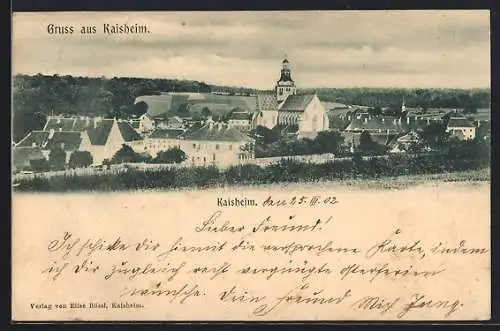 Gruss aus Kaisheim.
Kaisheim. den 25. III. 02
Lieber Freund!
Ich schicke Dir hiermit die versprochene Karte, indem
ich Dir zugleich recht vergnügte Osterferien
wünsche. Dein Freund Mich
Verlag von Elise Bössl, Kaisheim.